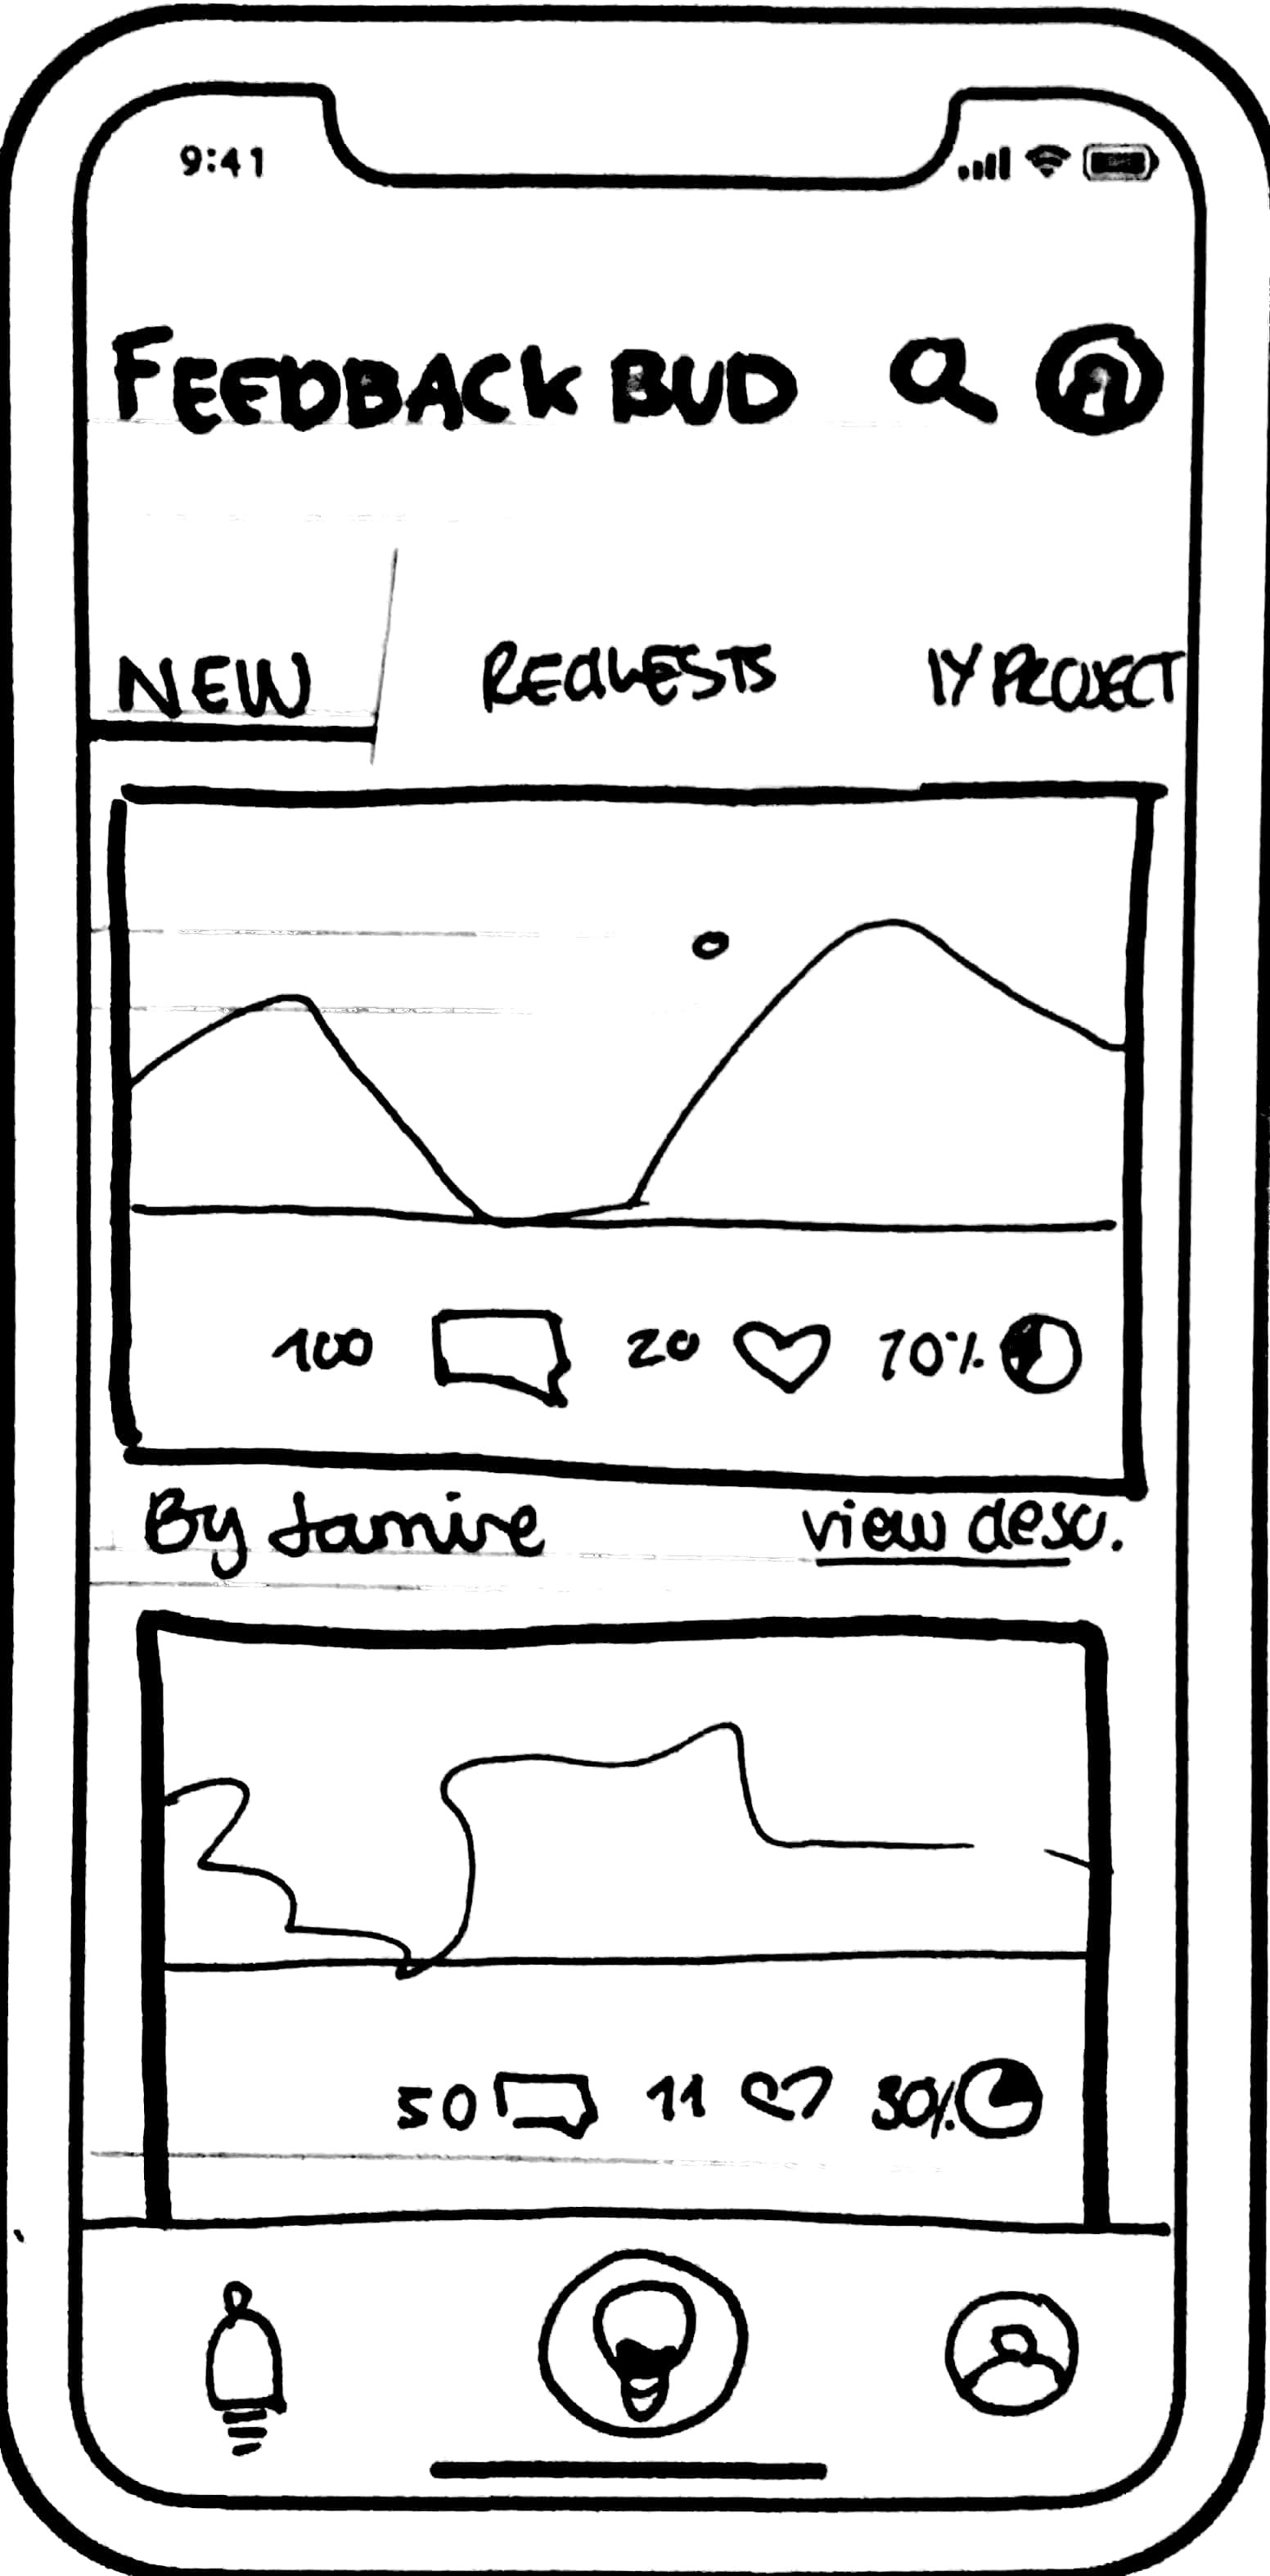 9:41
FEEDBACK BUD
NEW REQUESTS MY PROJECT
100 20 70%
By Jamire view desc.
50 11 30%